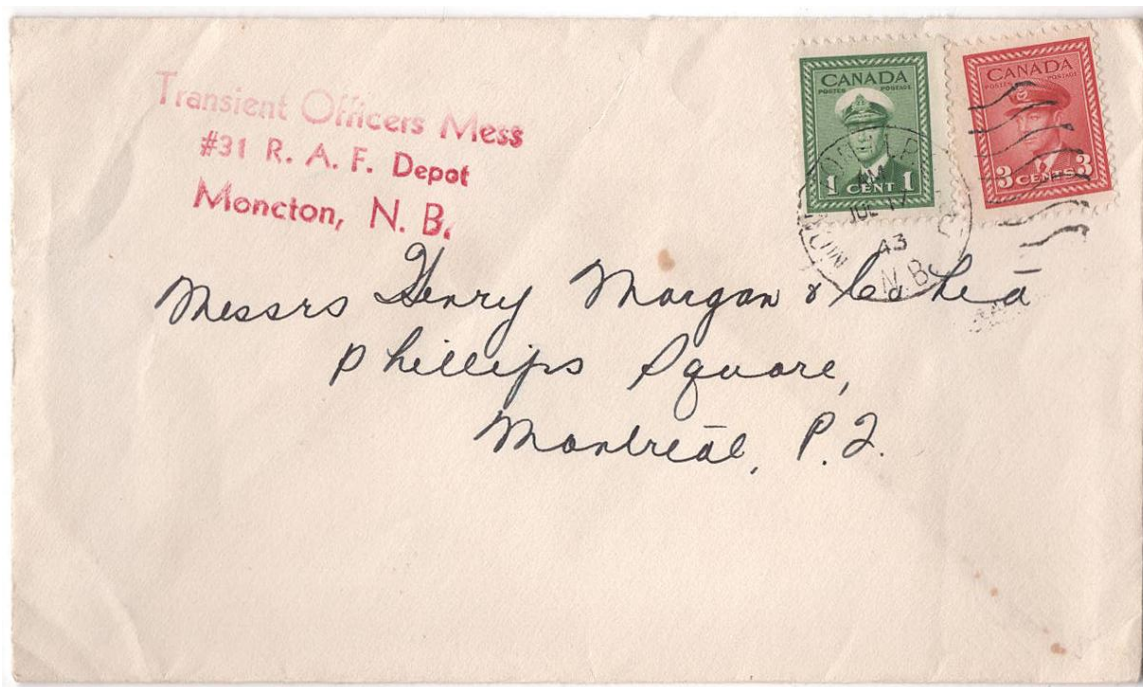 Transient Officers Mess
#31 R. A. F. Depot
Moncton, N. B.
CANADA
POSTES POSTAGE
1 CENT 1
CANADA
POSTES POSTAGE
3 CENTS 3
AM
JUL 17
43
N.B.
Messrs Henry Morgan & Co Ltd
Phillips Square,
Montreal, P.Q.